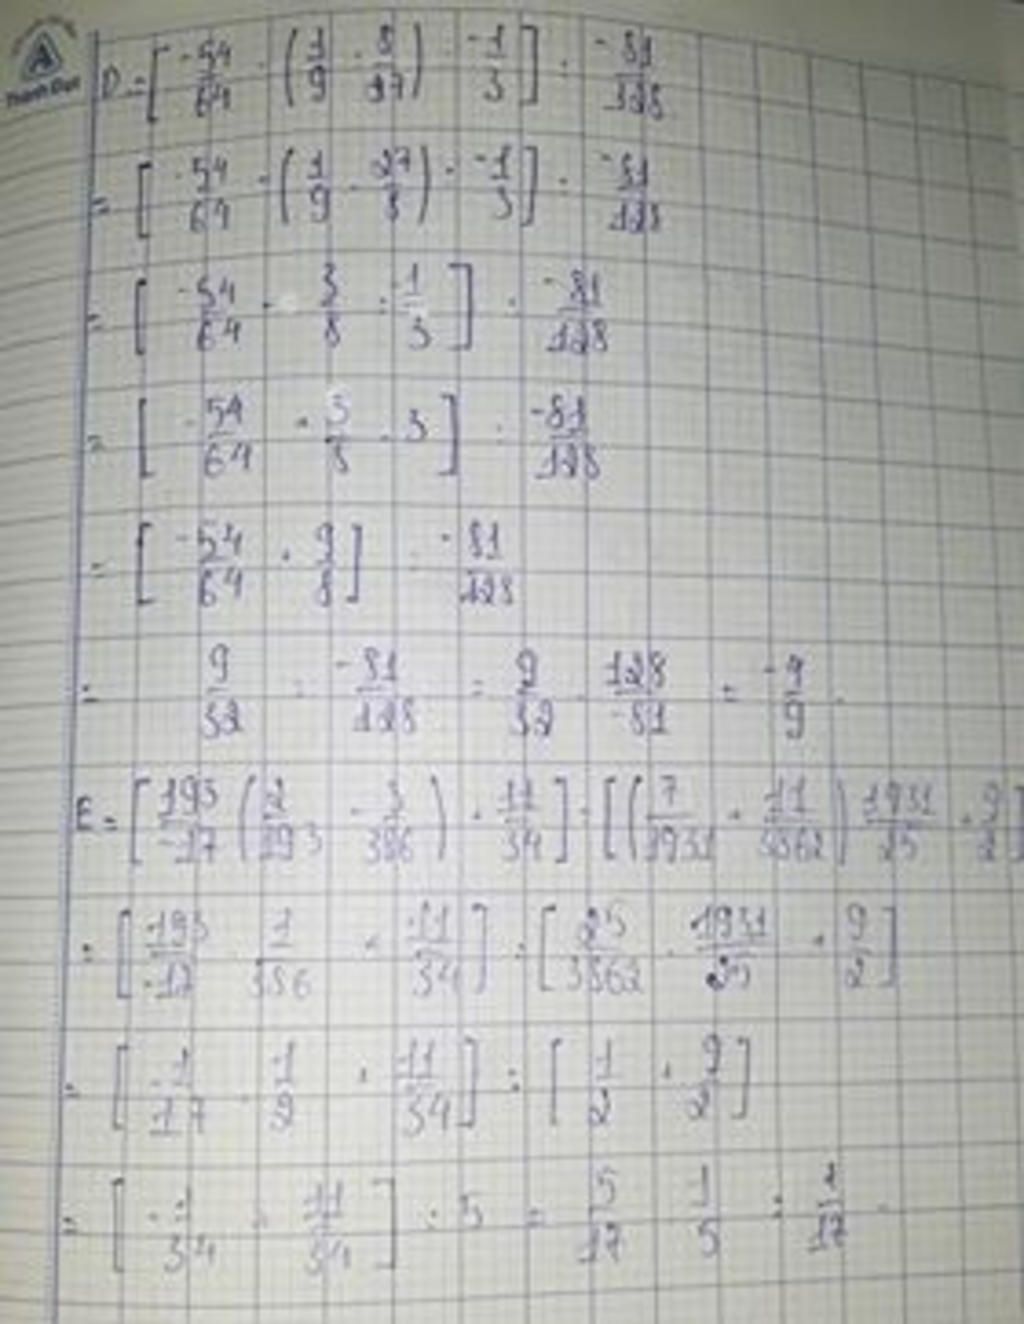 Thành Đạt
D = [ -54/64 - (1/9 : 8/27) : -1/3 ] : -81/128
= [ -54/64 - (1/9 . 27/8) : -1/3 ] : -81/128
= [ -54/64 - 3/8 : -1/3 ] : -81/128
= [ -54/64 + 3/8 . 3 ] : -81/128
= [ -54/64 + 9/8 ] : -81/128
= 9/32 : -81/128 = 9/32 . 128/-81 = -4/9
E = [ 193/-17 (2/193 - 3/386) + 11/34 ] : [ (7/1931 + 11/3862) 1931/25 + 9/2 ]
= [ 193/-17 . 1/386 + 11/34 ] : [ 25/3862 . 1931/25 + 9/2 ]
= [ 1/-17 . 1/2 + 11/34 ] : [ 1/2 + 9/2 ]
= [ -1/34 + 11/34 ] : 5 = 5/17 . 1/5 = 1/17